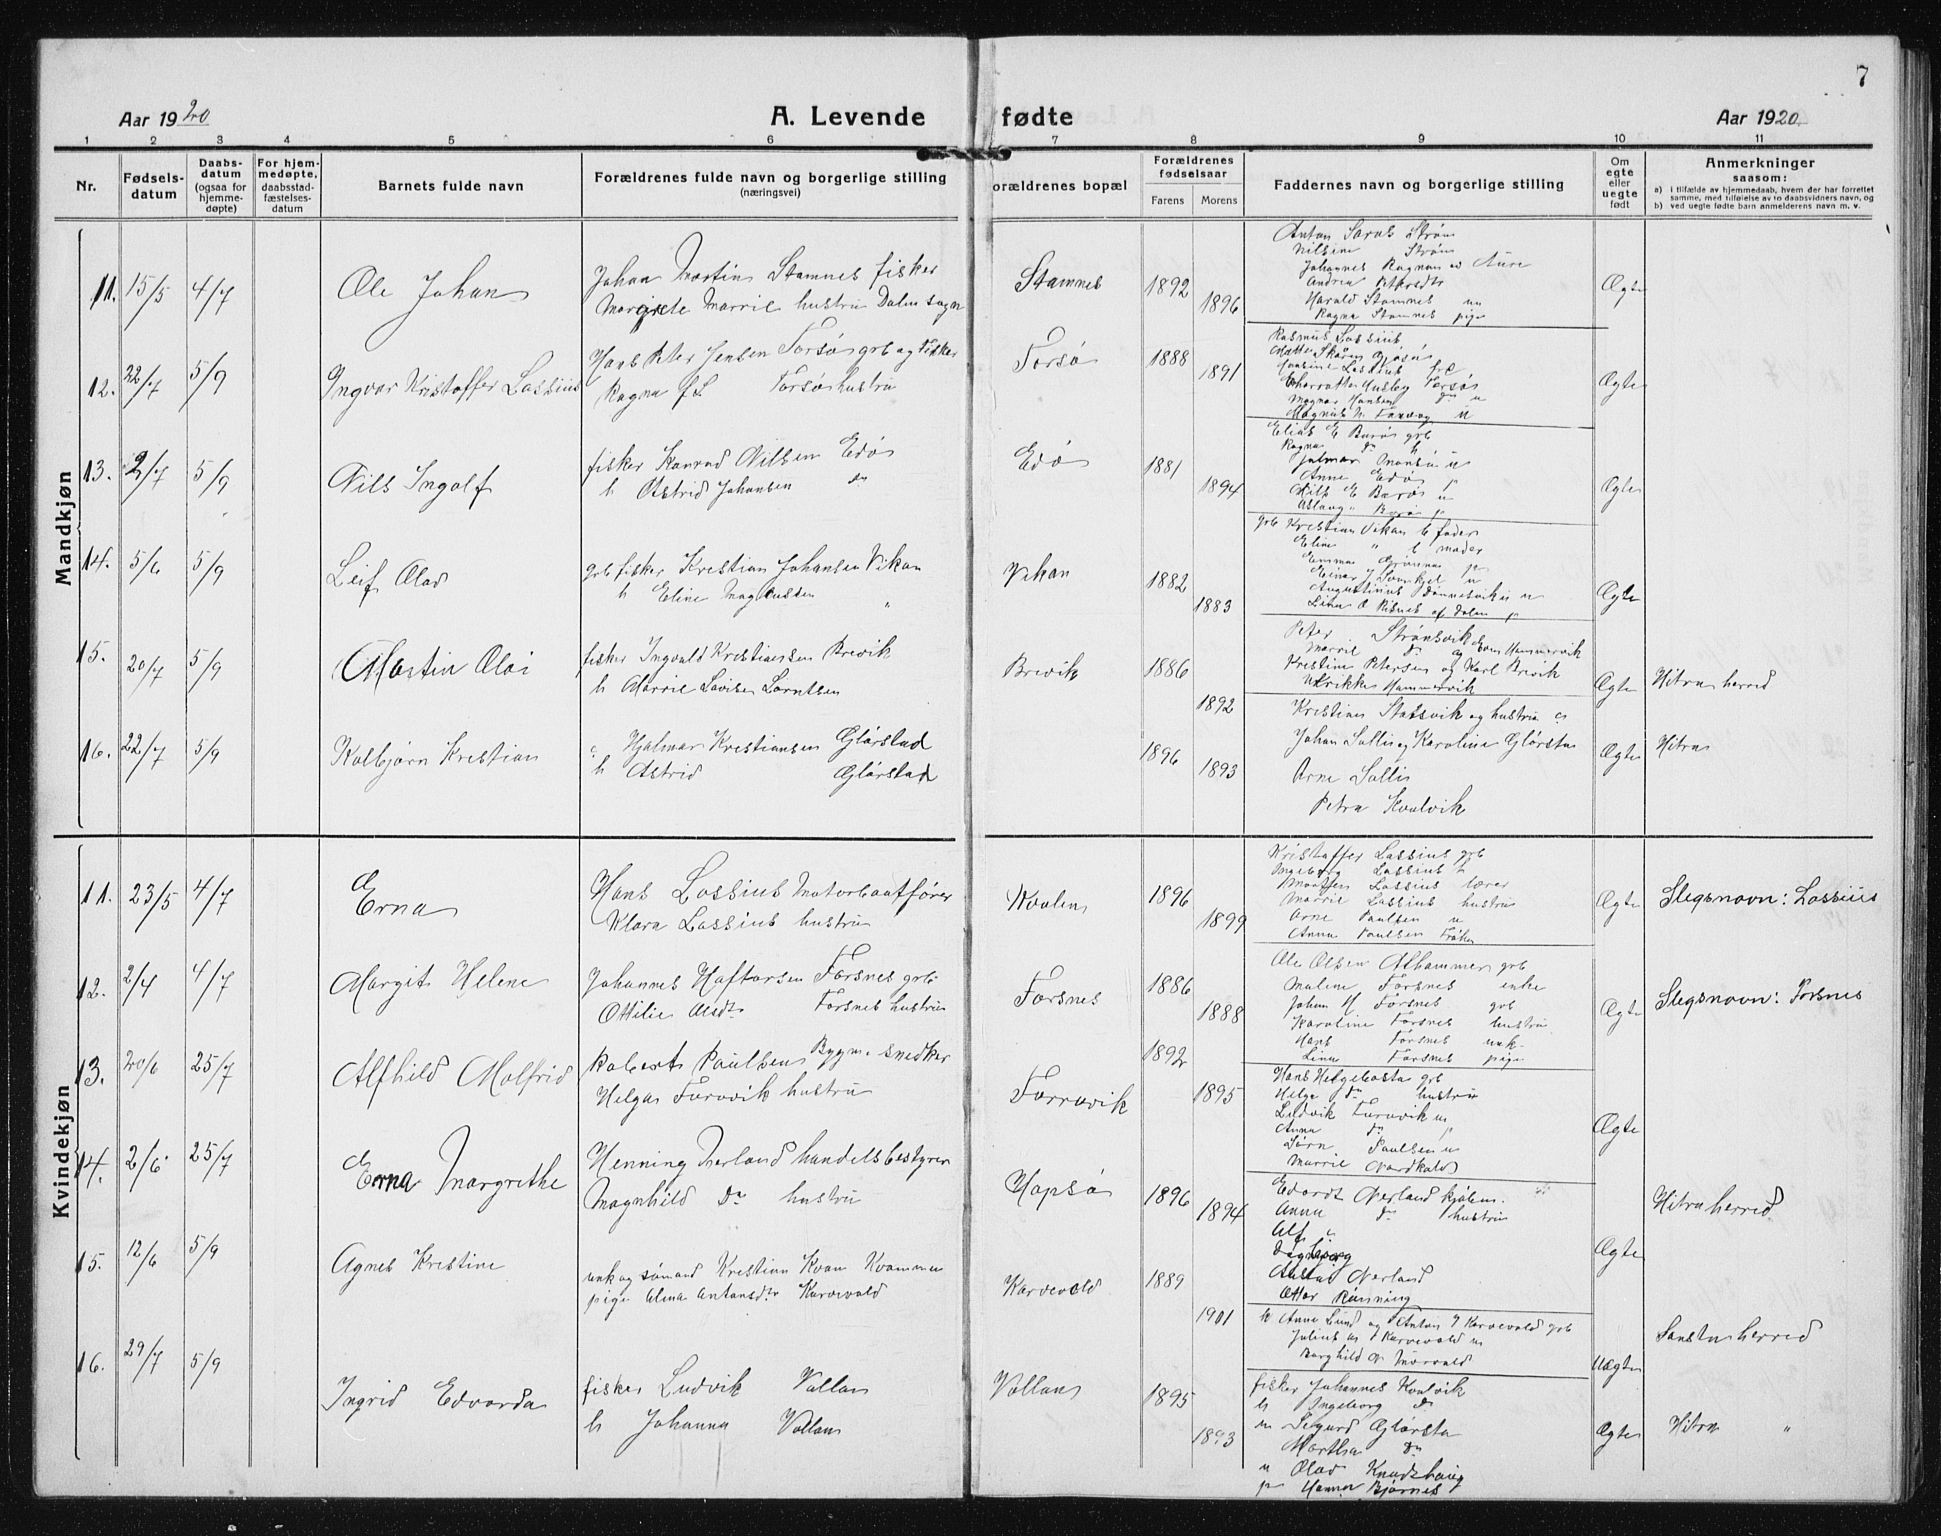 7
Aar 1920
A. Levende fødte
Aar 1920
1 2 3 4 5 6 7 8 9 10 11
Nr.
Fødsels-
datum
Daabs-
datum
(ogsaa for
hjemme-
døpte)
For hjem-
medøpte,
daabsstad-
fæstelses-
datum
Barnets fulde navn
Forældrenes fulde navn og borgerlige stilling
(næringsvei)
orældrenes bopæl
Forældrenes
fødselsaar
Farens Morens
Faddernes navn og borgerlige stilling
Om
egte
eller
uegte
født
Anmerkninger
saasom:
a) i tilfælde av hjemmedaab, hvem der har forrettet
samme, med tilføielse av to daabsvidners navn, og
b) ved uegte fødte barn anmelderens navn m. v.
Mandkjøn
11. 15/5 4/7 Ole Johan
Johan Martin Stamnes fisker
Margrete Marrie hustru Dalen sogn
Stamnes 1892 1896
Anton Strøm
Nilsine Strøm
Johannes Aure
Andrea Petersdtr
Harald Stamnes
Ragna Stamnes pige
Ægte
12. 22/7 5/9 Ingvar Kristoffer Lossius
Hans Peter Jensen Forsø grb og Fisker
Ragna f L. Forsø hustru
Forsø 1888 1891
Rasmus Lossius
Lossius
Husby Forsø
Magnar Hansen
Ægte
13. 2/7 5/9 Nils Ingolf
fisker Konrad Nilsen Edø
h Astrid Johansen do
Edø 1881 1894
Elias E Barø grb
Ragna do h
Anne Edø p
Nils E Barø u
Aslaug " Barø p
Ægte
14. 5/6 5/9 Leif Olav
grb fisker Kristian Johansen Vikan
h Eline Magnussen "
Vikan 1882 1883
grb Kristian Vikan b fader
Eline " b moder
Emma p
Einar J u
Augustinus u
af Dalen p
Ægte
15. 20/7 5/9 Martin Olai
fisker Ingvald Kristiansen Brevik
h Marrie Lovise Lorntsen
Brevik 1886 1892
Peter Strømsvik
Marrie do og Hammervik
Kristine Petersen og Karl Brevik
Ulrikke Hammervik
Ægte Hitra herred
16. 22/7 5/9 Kolbjørn Kristian
Hjalmar Kristiansen Glørstad
h Astrid Glørstad
1896 1893
Kristian og hustru
Johan Sollie og Karoline Glørsta
Arne Solli
Petra Kvalvik
Ægte Hitra
Kvindekjøn
11. 23/5 4/7 Erna
Hans Lossius Motorbaatfører
Klara Lossius hustru
Kvalen 1896 1899
Kristoffer Lossius grb
Ingeborg Lossius h
Lossius lærer
Marrie Lossius hustru
Arne Paulsen u
Anna Paulsen Frøken
Ægte Slegsnavn: Lossius
12. 2/4 4/7 Margit Helene
Johannes Haftorsen Forsnes grb
Ottilie Olsdtr Forsnes hustru
Forsnes 1886 1888
Ole Olsen Alhammer grb
Malene Forsnes enke
Johan H Forsnes grb
Karoline Forsnes hustru
Hans Forsnes unk.
Lina Forsnes pige
Ægte Slegsnavn: Forsnes
13. 20/6 25/7 Alfhild Malfrid
Robert Paulsen Bygn. snedker
Helga Furovik hustru
Forrovik 1892 1895
Hans Helgebosta grb
Helga do hustru
Ludvik Furovik u
Anna do p
Jørn Paulsen u
Marrie Nordkald
Ægte
14. 2/6 25/7 Erna Margrethe
Henning Nerland handelsbestyrer
Magnhild do hustru
Hopsø 1896 1894
Edvardt Nerland kjøbm.
Anna do hustru
Alf "
Nerland
Ottar Rønning
Ægte Hitra herred
15. 12/6 5/9 Agnes Kristine
unk og sømand Kristian Kvam Kvammen
pige Alma Antonsdtr Korsvold
Korsvold 1889 1901
h Anne Lund og Anton J Korsvold grb
Julius u Korsvold u
Borghild
Uægte herred
16. 29/7 5/9 Ingrid Edvarda
fisker Ludvik Vollan
h Johanna Vollan
Vollan 1895 1893
fisker Johannes Kvalvik
h Ingeborg do
u Sigurd Glørsta
Martha do
u Olav Knudshaug
p Hanna Bjørnes
Ægte Hitra "